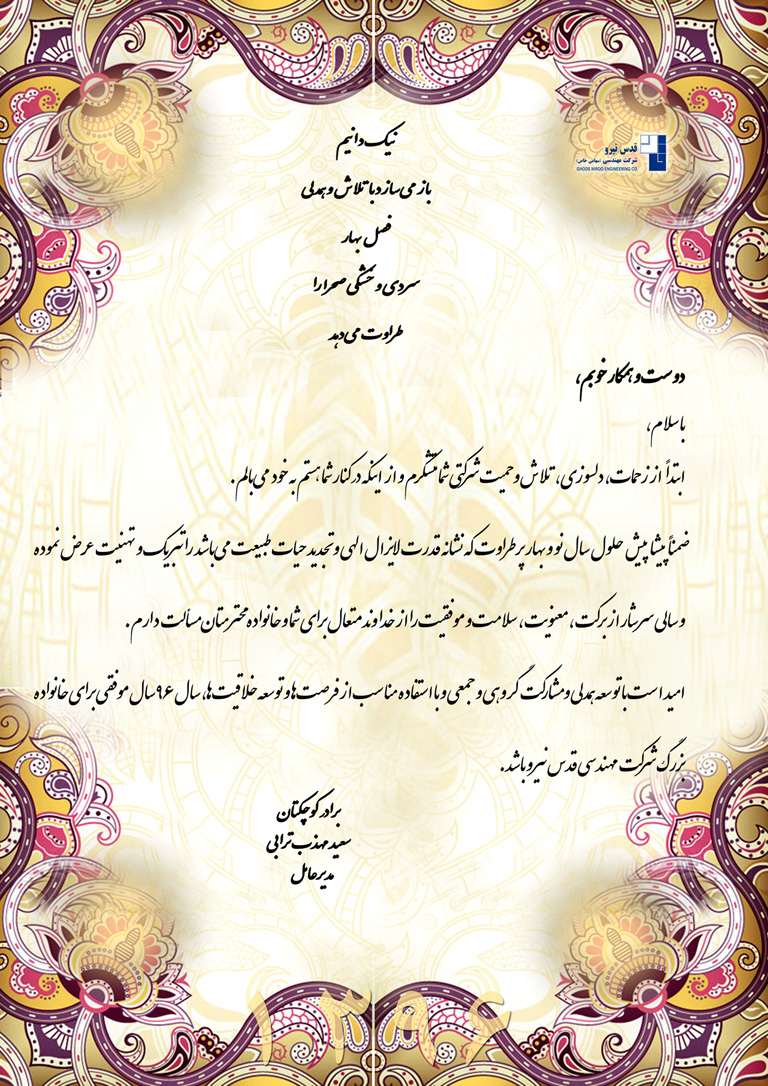 قدس نیرو
شرکت مهندسی (سهامی خاص)
GHODS NIROO ENGINEERING CO.
نیک دانیم
باز می‌سازد با تلاش و همدلی
فصل بهار
سردی و خشکی صحرا را
طراوت می‌دهد
دوست و همکار خوبم،
باسلام،
ابتداً از زحمات، دلسوزی، تلاش و حمیت شرکتی شما متشکرم و از اینکه در کنار شما هستم به خود می‌بالم.
ضمناً پیشاپیش حلول سال نو و بهار پر طراوت که نشانه قدرت لایزال الهی و تجدید حیات طبیعت می‌باشد را تبریک و تهنیت عرض نموده
و سالی سرشار از برکت، معنویت، سلامت و موفقیت را از خداوند متعال برای شما و خانواده محترمتان مسألت دارم.
امید است با توسعه همدلی و مشارکت گروهی و جمعی و با استفاده مناسب از فرصت‌ها و توسعه خلاقیت‌ها، سال ۹۶ سال موفقی برای خانواده
بزرگ شرکت مهندسی قدس نیرو باشد.
برادر کوچکتان
سعید مهذب ترابی
مدیرعامل
۱۳۹۶